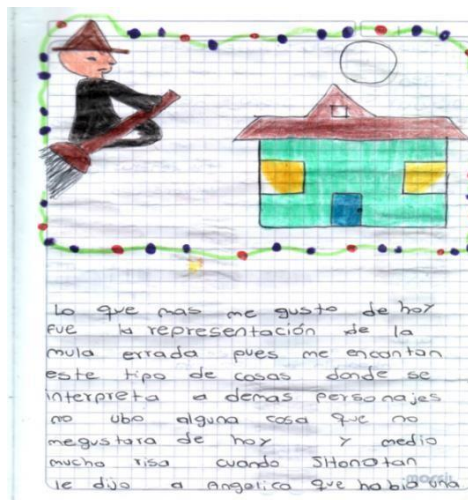 Lo que mas me gusto de hoy
fue la representación de la
mula errada pues me encantan
este tipo de cosas donde se
interpreta a demas personajes
no ubo alguna cosa que no
megustara de hoy y medio
mucha risa cuando SHonatan
le dijo a Angelica que habia una